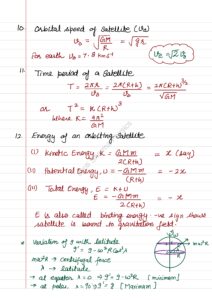 10. Orbital speed of satellite (v₀)
v₀ = √(GM/R) = √(gR)
For earth v₀ = 7.8 km s⁻¹
vₑ = √2 v₀
11. Time period of a satellite
T = 2πR/v₀ = 2π(R+h)/v₀ = 2π(R+h)^(3/2)/√GM
or T² = K(R+h)³
Where K = 4π²/GM
12. Energy of an orbiting satellite
(i) Kinetic Energy, K = GMm/2(R+h) = x (say)
(ii) Potential Energy, U = -GMm/(R+h) = -2x
(iii) Total Energy, E = K+U
E = -GMm/2(R+h) = -x
E is also called binding energy -ve sign shows
satellite is bound to gravitation field.
* Variation of g with latitude
g' = g - ω²R cos²λ
mω²r → centrifugal force
λ → latitude
→ at equator λ = 0 ⇒ g' = g - ω²R [minimum]
→ at poles λ = 90 ⇒ g' = g [Maximum]
mω²r